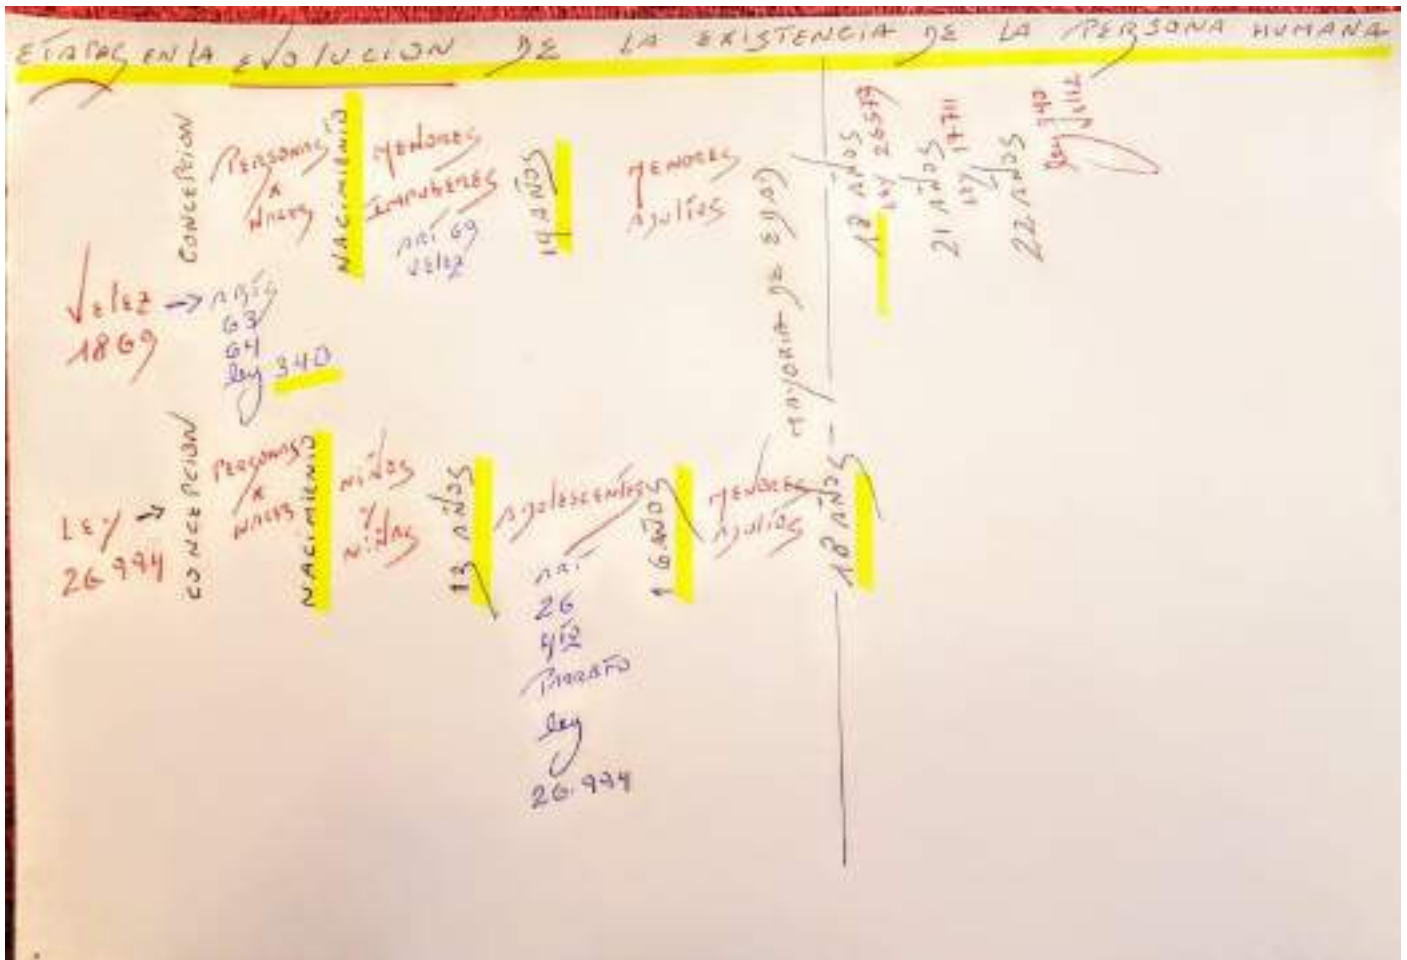 ETAPAS EN LA EVOLUCION DE LA EXISTENCIA DE LA PERSONA HUMANA
VELEZ
1869
→ ARTS
63
64
ley 340
CONCEPCION
PERSONAS
X
NACER
NACIMIENTO
MENORES
IMPUBERES
ART 69
VELEZ
14 AÑOS
MENORES
ADULTOS
MAYORIA DE EDAD
18 AÑOS
LEY 26579
21 AÑOS
LEY 17711
22 AÑOS
ley 340
LEY
26.994
→
CONCEPCION
PERSONAS
X
NACER
NACIMIENTO
NIÑOS
Y
NIÑAS
13 AÑOS
ADOLESCENTES
ART
26
4TO
PARRAFO
ley
26.994
16 AÑOS
MENORES
ADULTOS
18 AÑOS